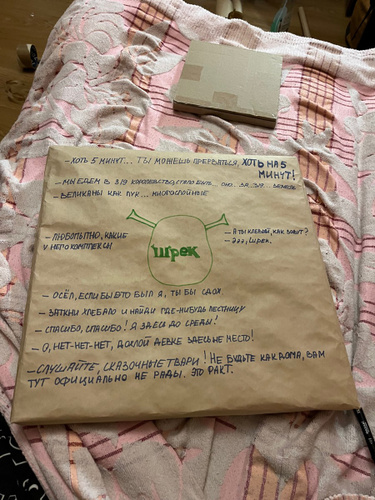 - ХОТЬ 5 МИНУТ... ТЫ МОЖЕШЬ ПРЕРВАТЬСЯ, ХОТЬ НА 5
МИНУТ!
- МЫ ЕДЕМ В КОРОЛЕВСТВО,
- ВЕЛИКАНЫ КАК ЛУК... МНОГОСЛОЙНЫЕ
- ЛЮБОПЫТНО, КАКИЕ
У НЕГО КОМПЛЕКСЫ
- А ТЫ КЛЕВЫЙ, КАК ЗОВУТ?
- ЭЭЭ, ШРЕК.
шрек
- ОСЁЛ, ЕСЛИ БЫ ЭТО БЫЛ Я, ТЫ БЫ СДОХ.
- ЗАТКНИ ХЛЕБАЛО И НАЙДИ ГДЕ-НИБУДЬ ЛЕСТНИЦУ
- СПАСИБО, СПАСИБО! Я ЗДЕСЬ ДО СРЕДЫ!
- О, НЕТ-НЕТ-НЕТ, ДОХЛОЙ ДЕВКЕ ЗДЕСЬ НЕ МЕСТО!
- СЛУШАЙТЕ, СКАЗОЧНЫЕ ТВАРИ! НЕ БУДЬТЕ КАК ДОМА, ВАМ
ТУТ ОФИЦИАЛЬНО НЕ РАДЫ. ЭТО ФАКТ.